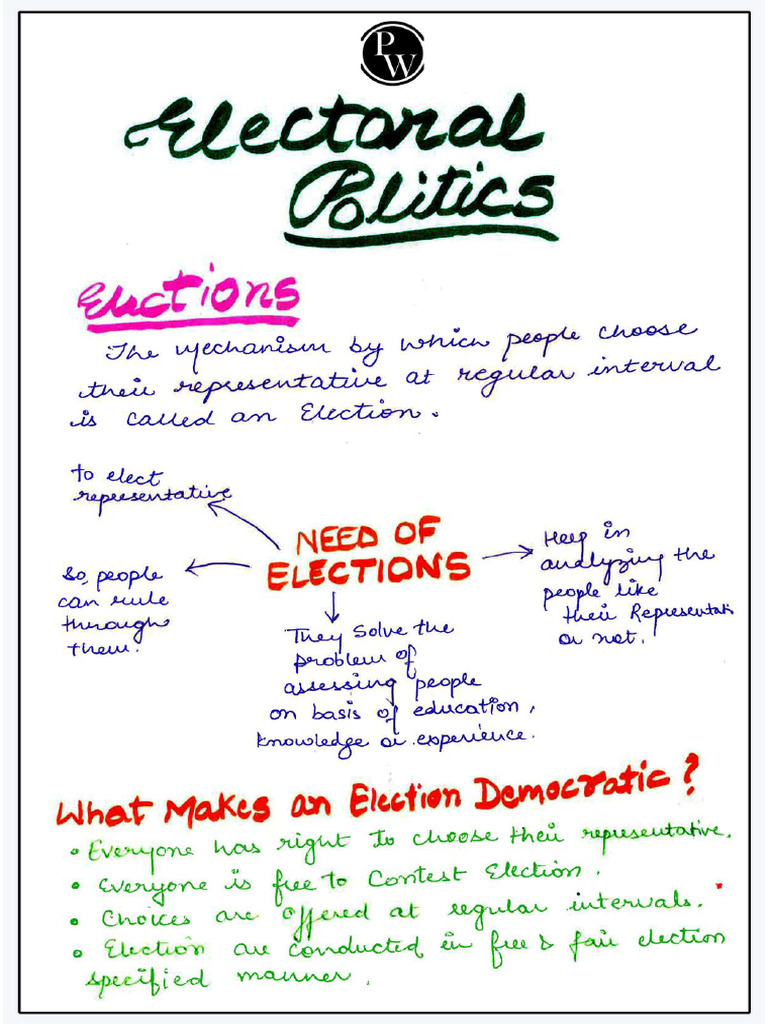 PW
Electoral
Politics
Elections
The Mechanism by which people choose
their representative at regular interval
is called an Election.
to elect
representative
NEED OF
ELECTIONS
Help in
analyzing the
people like
their Representati
or not.
So, people
can rule
through
them.
They solve the
problem of
assessing people
on basis of education,
knowledge or experience.
What Makes an Election Democratic?
• Everyone has right to choose their representative.
• Everyone is free to Contest Election.
• Choices are offered at regular intervals.
• Election are conducted in free & fair election
specified manner.